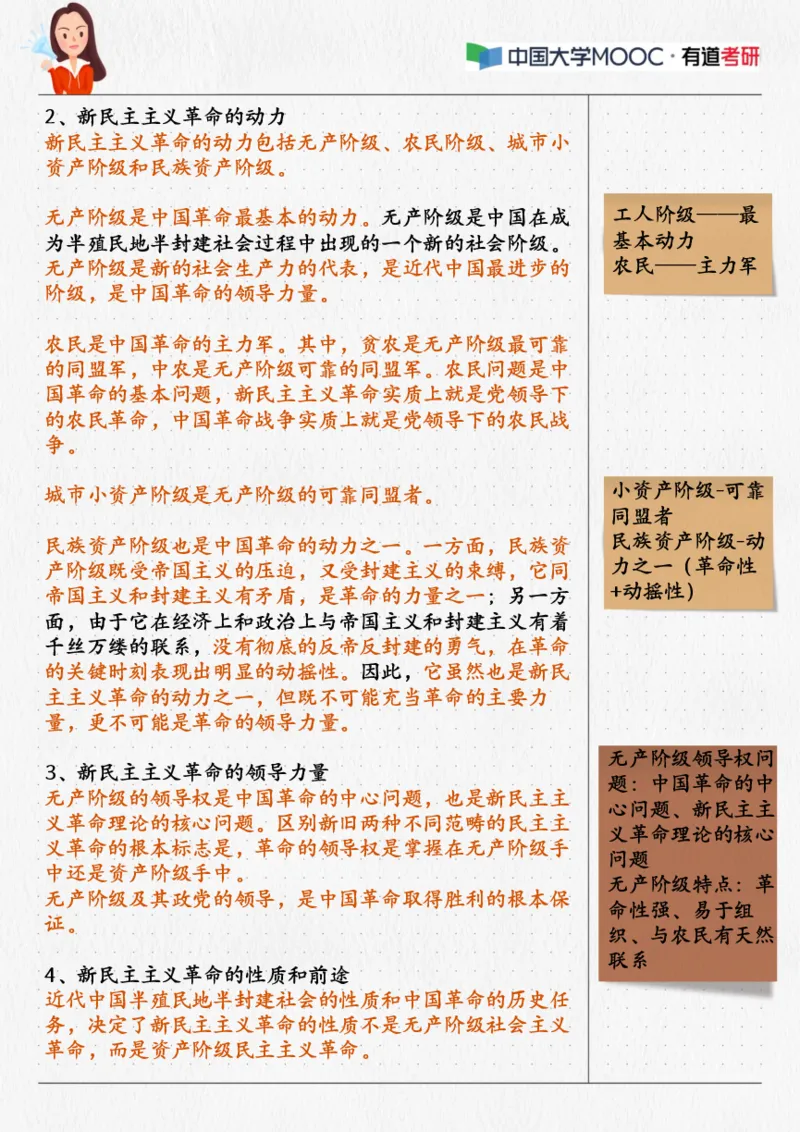 中国大学MOOC·有道考研
2、新民主主义革命的动力
新民主主义革命的动力包括无产阶级、农民阶级、城市小
资产阶级和民族资产阶级。
无产阶级是中国革命最基本的动力。无产阶级是中国在成
为半殖民地半封建社会过程中出现的一个新的社会阶级。
无产阶级是新的社会生产力的代表，是近代中国最进步的
阶级，是中国革命的领导力量。
农民是中国革命的主力军。其中，贫农是无产阶级最可靠
的同盟军，中农是无产阶级可靠的同盟军。农民问题是中
国革命的基本问题，新民主主义革命实质上就是党领导下
的农民革命，中国革命战争实质上就是党领导下的农民战
争。
城市小资产阶级是无产阶级的可靠同盟者。
民族资产阶级也是中国革命的动力之一。一方面，民族资
产阶级既受帝国主义的压迫，又受封建主义的束缚，它同
帝国主义和封建主义有矛盾，是革命的力量之一；另一方
面，由于它在经济上和政治上与帝国主义和封建主义有着
千丝万缕的联系，没有彻底的反帝反封建的勇气，在革命
的关键时刻表现出明显的动摇性。因此，它虽然也是新民
主主义革命的动力之一，但既不可能充当革命的主要力
量，更不可能是革命的领导力量。
3、新民主主义革命的领导力量
无产阶级的领导权是中国革命的中心问题，也是新民主主
义革命理论的核心问题。区别新旧两种不同范畴的民主主
义革命的根本标志是，革命的领导权是掌握在无产阶级手
中还是资产阶级手中。
无产阶级及其政党的领导，是中国革命取得胜利的根本保
证。
4、新民主主义革命的性质和前途
近代中国半殖民地半封建社会的性质和中国革命的历史任
务，决定了新民主主义革命的性质不是无产阶级社会主义
革命，而是资产阶级民主主义革命。
工人阶级——最
基本动力
农民——主力军
小资产阶级-可靠
同盟者
民族资产阶级-动
力之一（革命性
+动摇性）
无产阶级领导权问
题：中国革命的中
心问题、新民主主
义革命理论的核心
问题
无产阶级特点：革
命性强、易于组
织、与农民有天然
联系